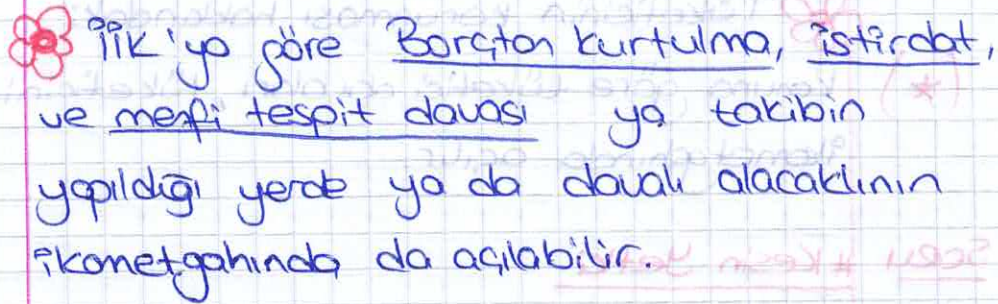 İİK'ya göre Borçtan kurtulma, istirdat,
ve menfi tespit davası ya takibin
yapıldığı yerde ya da davalı alacaklının
ikametgahında da açılabilir.